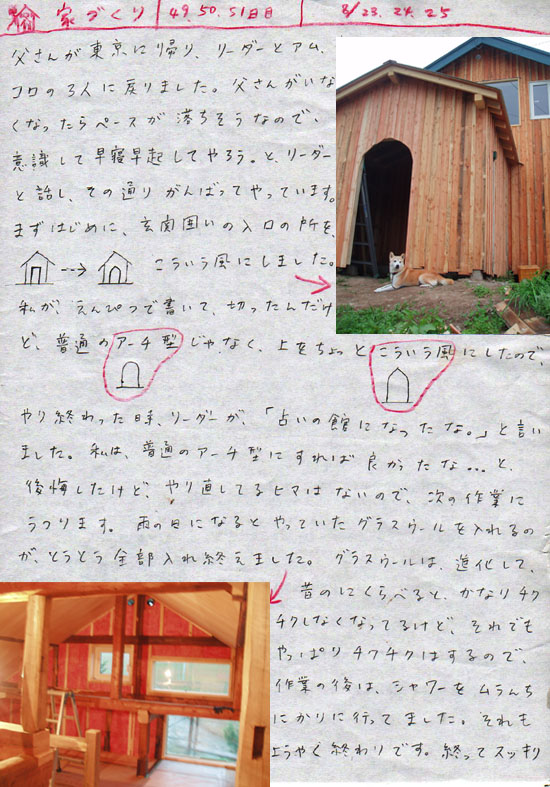 家づくり 49.50.51日目 8/23.24.25
父さんが東京に帰り、リーダーとアム、
コロの3人に戻りました。父さんがいな
くなったらペースが落ちそうなので、
意識して早寝早起してやろう。と、リーダー
と話し、その通りがんばってやっています。
まずはじめに、玄関囲いの入口の所を、
こういう風にしました。
私が、えんぴつで書いて、切ったんだけ
ど、普通のアーチ型じゃなく、上をちょっとこういう風にしたので、
やり終わった時、リーダーが、「占いの館になったな。」と言い
ました。私は、普通のアーチ型にすれば良かったな…と、
後悔したけど、やり直してるヒマはないので、次の作業に
うつります。雨の日になるとやっていたグラスウールを入れるの
が、とうとう全部入れ終えました。グラスウールは、進化して、
昔のにくらべると、かなりチク
チクしなくなってるけど、それでも
やっぱりチクチクはするので、
作業の後は、シャワーをムラんち
にかりに行ってました。それも
ようやく終わりです。終ってスッキリ